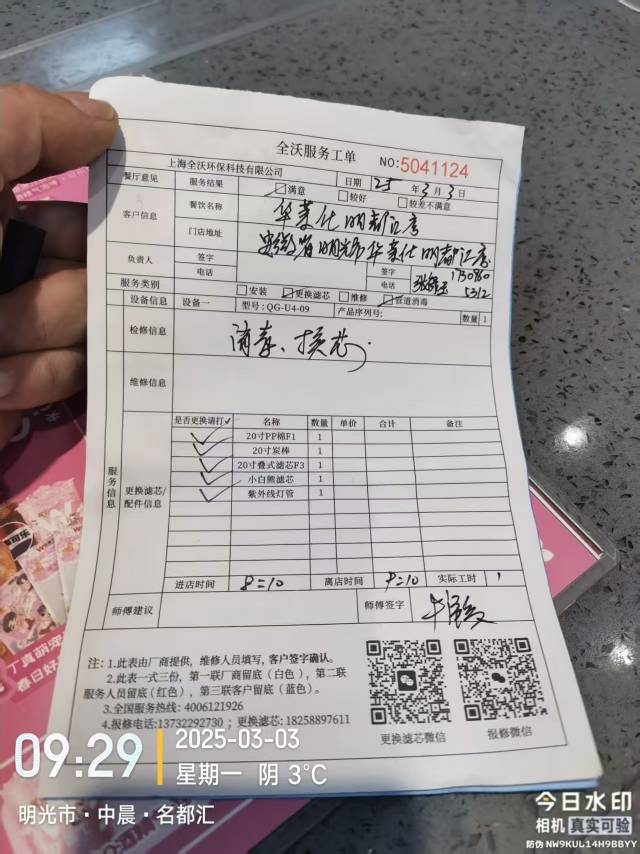 全沃服务工单
上海全沃环保科技有限公司
NO:5041124
餐厅意见 服务结果 日期 25 年 3 月 3 日
满意 较好 较差不满意
客户信息 餐饮名称 华莱仕明都汇店
门店地址 安徽省明光市华莱仕明都汇店
负责人 签字 签字
电话 电话 1730980
5312
服务类别 安装 更换滤芯 维修 管道消毒
设备信息 设备一 型号:QG-U4-09 产品序列号: 数量 1
检修信息 消毒、换芯
维修信息
服务信息
更换滤芯/配件信息
是否更换请打✓ 名称 数量 单价 合计 备注
✓ 20寸PP棉F1 1
✓ 20寸炭棒 1
✓ 20寸叠式滤芯F3 1
✓ 小白熊滤芯 1
✓ 紫外线灯管 1
进店时间 8:10 离店时间 9:10 实际工时 1
师傅建议 师傅签字
注:1.此表由厂商提供,维修人员填写,客户签字确认。
2.此表一式三份,第一联厂商留底(白色),第二联
服务人员留底(红色),第三联客户留底(蓝色)。
3.全国服务热线:4006121926
4.报修电话:13732292730;更换滤芯:18258897611
更换滤芯微信 报修微信
09:29 2025-03-03
星期一 阴 3℃
明光市·中晨·名都汇
今日水印
相机 真实可验
防伪 NW9KUL14H9BBYY